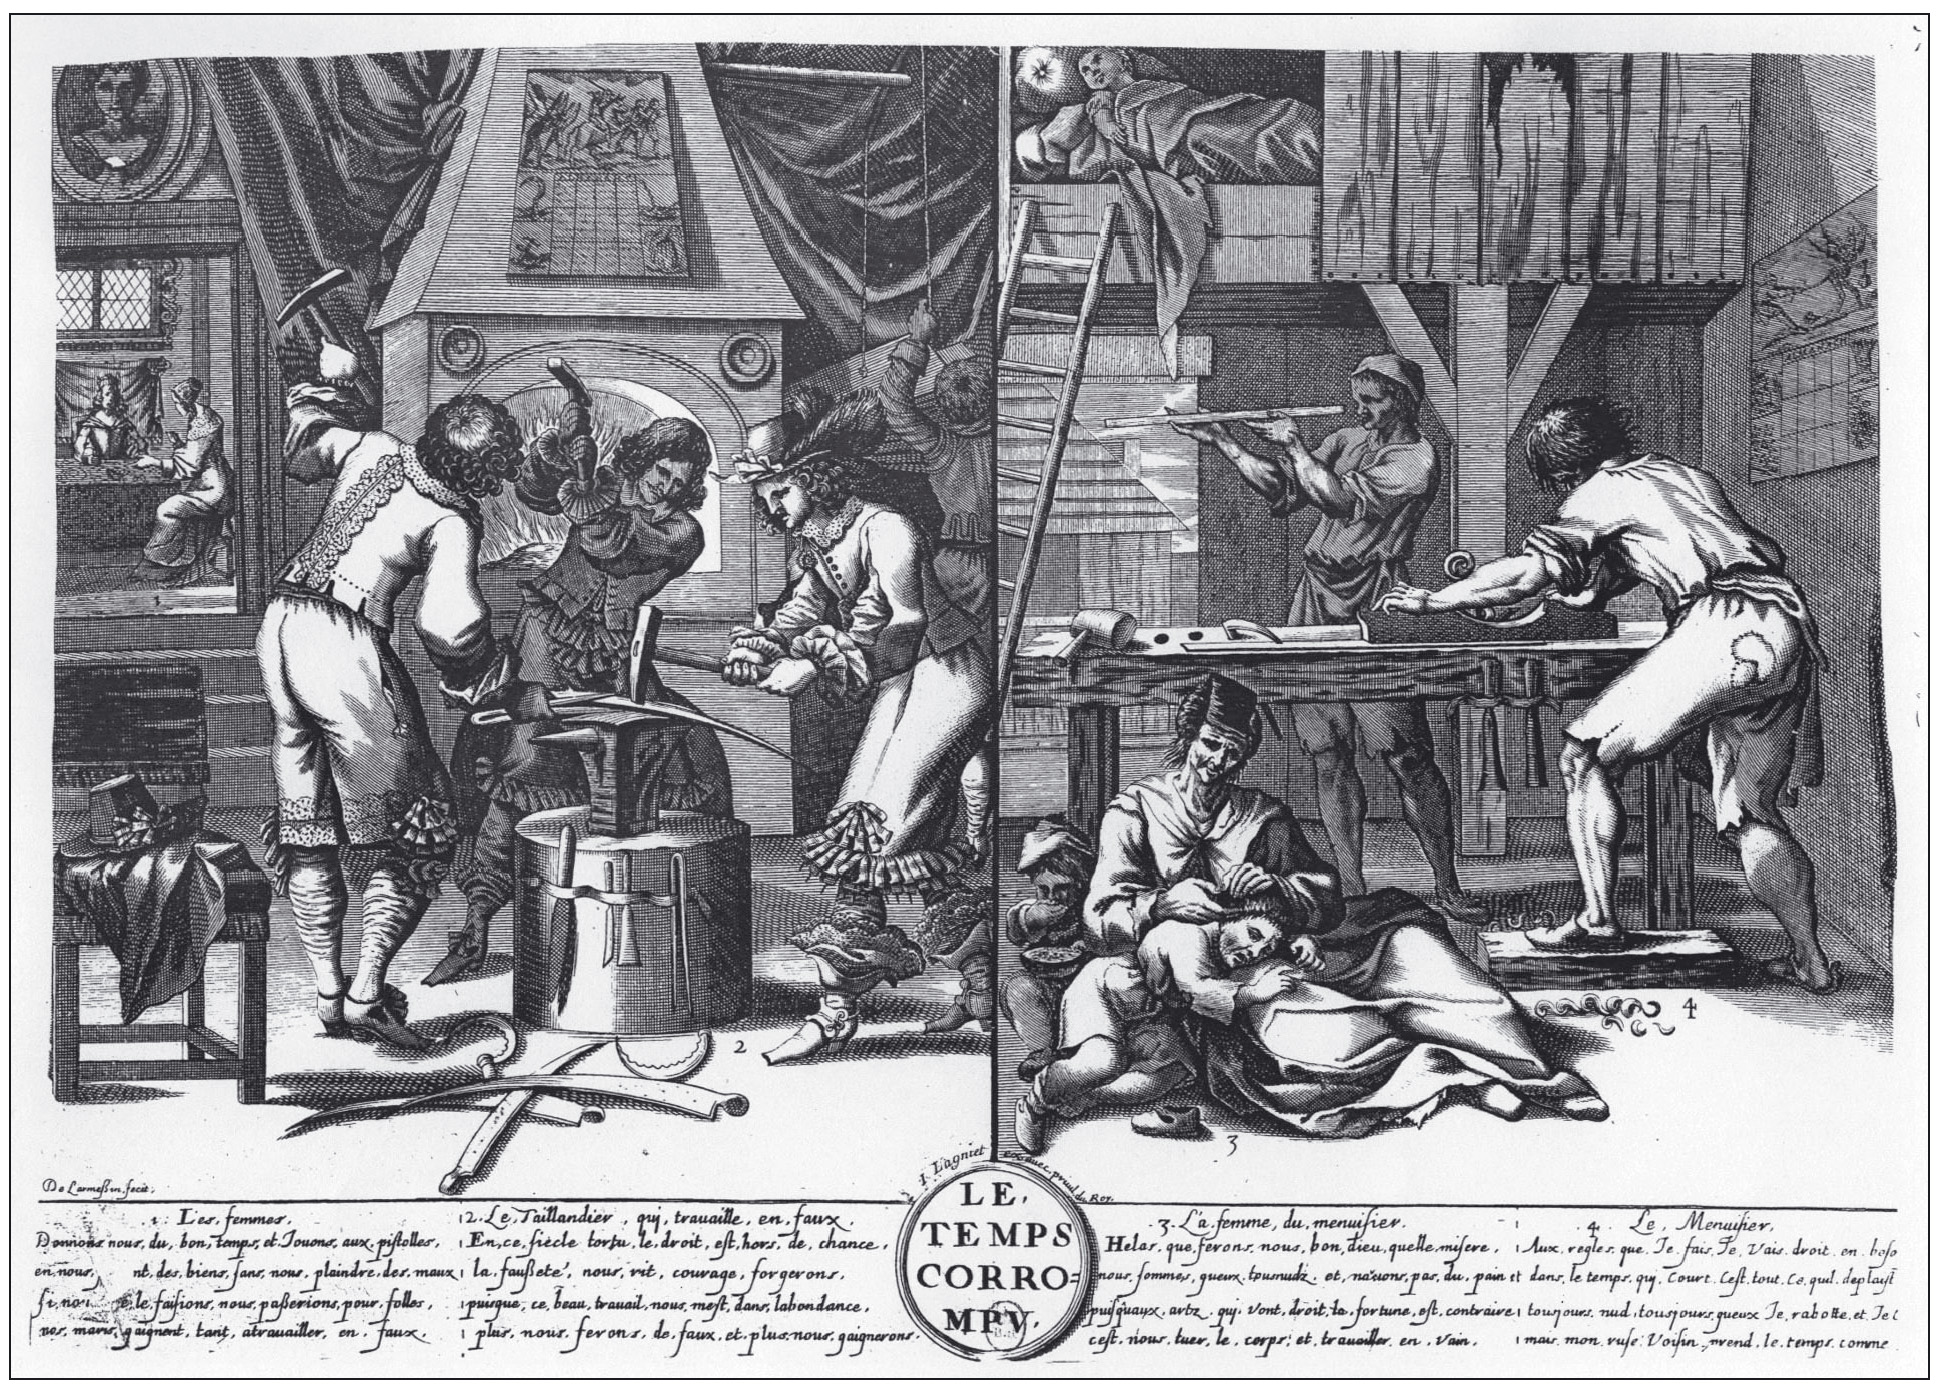 1
2
3
4
De Larmessin fecit.
I. Lagniet ex. avec privil du Roy.
LE.
TEMPS
CORRO=
MPV.
1. Les, femmes,
Donnons nous, du, bon, temps, et Jouons, aux, pistolles,
en nous, nt, des, biens, sans, nous, plaindre, des, maux
si, nou le, faisions, nous, passerions, pour, folles,
nos, maris, gaignent, tant, atrauailler, en, faux.
2. Le, Taillandier, qui, trauaille, en, faux.
En, ce, siecle tortu, le, droit, est, hors, de, chance,
la fausseté, nous, rit, courage, forgerons,
puisque, ce, beau, trauail, nous, mest, dans, labondance,
plus, nous, ferons, de, faux, et, plus, nous, gaignerons.
3. La, femme, du, menuisier.
Helas, que, ferons, nous, bon, dieu, quelle, misere,
nous, sommes, gueux, tousnudz, et, nauons, pas, du, pain
puisquaux, artz, qui, vont, droit, la, fortune, est, contraire
cest, nous, tuer, le, corps, et, trauailler, en, vain.
4. Le, Menuisier,
Aux, regles, que, Je, fais, Je, Vais, droit, en, beso
et dans, le temps, qui, Court, Cest, tout, Ce, quil, deplaist
tousjours, nud, tousjours, gueux Je, rabotte, et Je
mais, mon, rusé, Voisin, prend, le, temps, comme